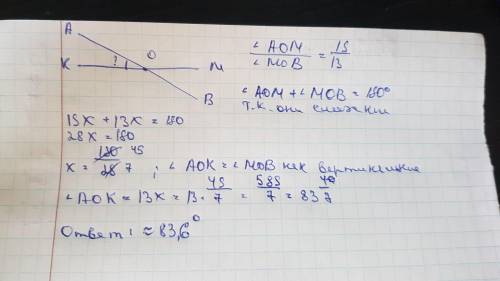 A
K ? O M
B
∠AOM / ∠MOB = 15/13
∠AOM + ∠MOB = 180°
т.к. они смежные
15x + 13x = 180
28x = 180
x = 180/28 45/7 ; ∠AOK = ∠MOB как вертикальные
∠AOK = 13x = 13 · 45/7 = 585/7 = 83 4/7
Ответ: ≈ 83,6°